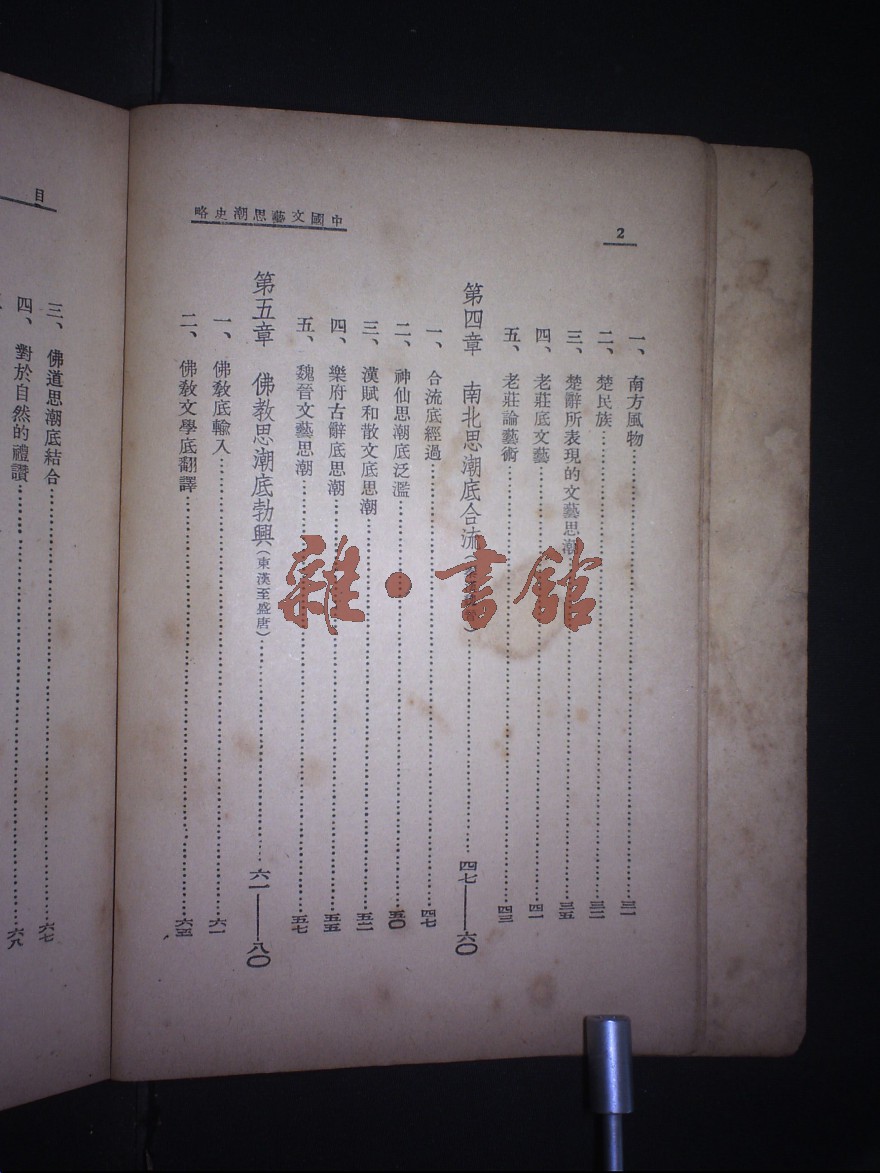 2
中國文藝思潮史略
一、南方風物……三一
二、楚民族……三二
三、楚辭所表現的文藝思潮……三五
四、老莊底文藝……四一
五、老莊論藝術……四三
第四章 南北思潮底合流……四七——六〇
一、合流底經過……四七
二、神仙思潮底泛濫……五〇
三、漢賦和散文底思潮……五二
四、樂府古辭底思潮……五五
五、魏晉文藝思潮……五七
第五章 佛教思潮底勃興(東漢至盛唐)……六一——八〇
一、佛教底輸入……六一
二、佛教文學底翻譯……六五
目
三、佛道思潮底結合……六七
四、對於自然的禮讚……六八
雜·書館